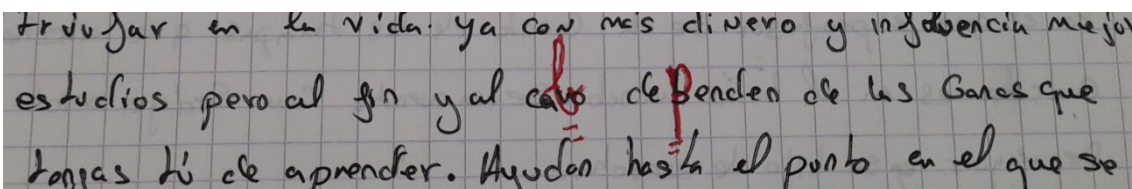 triunfar en la vida. ya con más dinero y influencia mejor
estudios pero al fin y al cavo dependen de las Ganas que
tengas tú de aprender. Ayudan hasta el punto en el que se